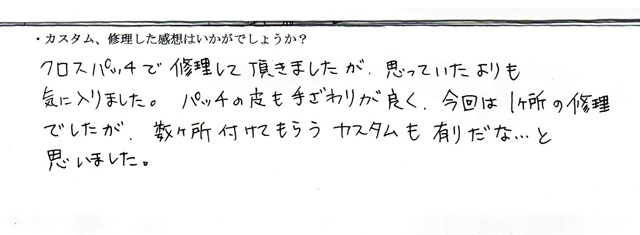 ・カスタム、修理した感想はいかがでしょうか？
クロスパッチで修理して頂きましたが、思っていたよりも
気に入りました。パッチの皮も手ざわりが良く、今回は1ヶ所の修理
でしたが、数ヶ所付けてもらうカスタムも有りだな…と
思いました。